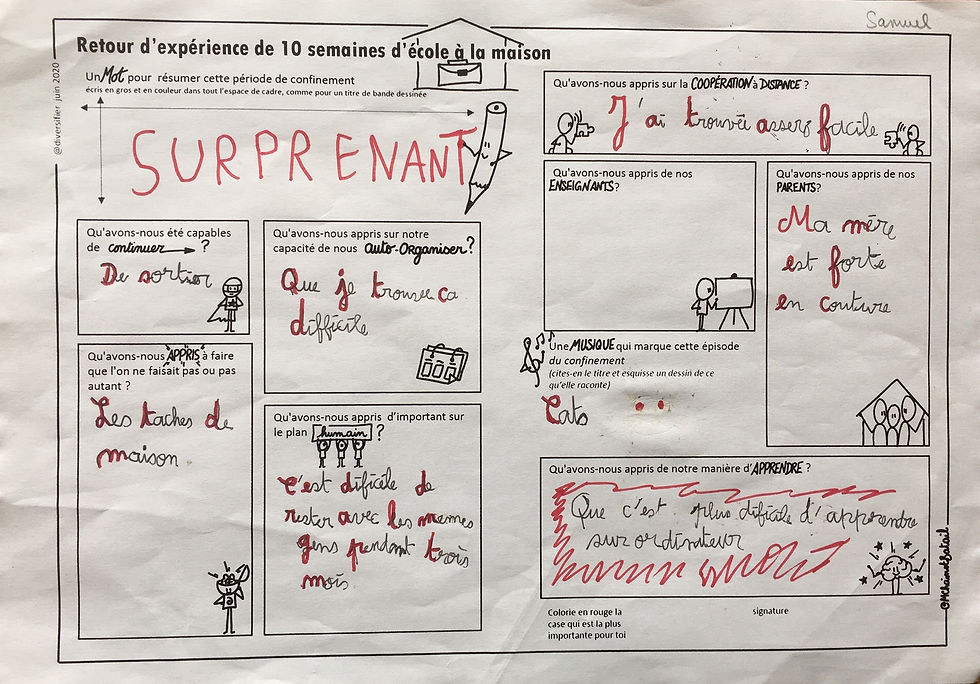 Samuel
Retour d'expérience de 10 semaines d'école à la maison
@diversifier juin 2020
Un Mot pour résumer cette période de confinement
écris en gros et en couleur dans tout l'espace de cadre, comme pour un titre de bande dessinée
SURPRENANT
Qu'avons-nous appris sur la COOPÉRATION à DISTANCE ?
J'ai trouvée assers facile
Qu'avons-nous été capables
de continuer ?
De sortier
Qu'avons-nous appris sur notre
capacité de nous auto-Organiser ?
Que je trouve ca
difficile
Qu'avons-nous appris de nos
ENSEIGNANTS?
Qu'avons-nous appris de nos
PARENTS?
Ma mère
est forte
en couture
Qu'avons-nous APPRIS à faire
que l'on ne faisait pas ou pas
autant ?
Les taches de
maison
Qu'avons-nous appris d'important sur
le plan humain ?
c'est dificile de
rester avec les memes
gens pendant trois
mois
Une MUSIQUE qui marque cette épisode
du confinement
(cites-en le titre et esquisse un dessin de ce
qu'elle raconte)
Cats
Qu'avons-nous appris de notre manière d'APPRENDRE ?
Que c'est plus dificile d'apprendre
sur ordinateur
Colorie en rouge la
case qui est la plus
importante pour toi
signature